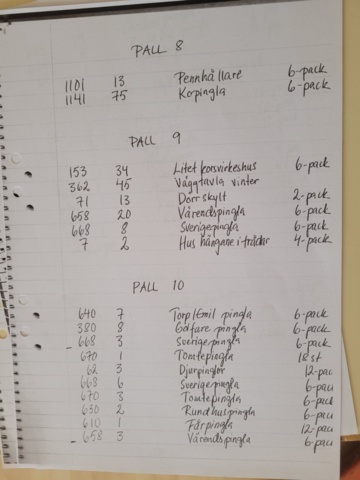 PALL 8
1101 13 Pennhållare 6-pack
1141 75 Kopingla 6-pack
PALL 9
153 34 Litet korsvirkeshus 6-pack
362 45 Väggtavla vinter
71 13 Dörrskylt 2-pack
658 20 Vårendspingla 6-pack
668 8 Sverigepingla 6-pack
7 2 Hus hängande i trådar 4-pack
PALL 10
640 7 Torp/Emil pingla 6-pack
380 8 Golfare pingla 6-pack
- 668 3 Sverigepingla 6-pack
670 1 Tomtepingla 18 st
62 3 Djurpinglor 12-pac
668 6 Sverigepingla 6-pac
670 3 Tomtepingla 6-pack
630 2 Rundhuspingla 6-pac
610 1 Fårpingla 12-pac
- 658 3 Vårendspingla 6-pac